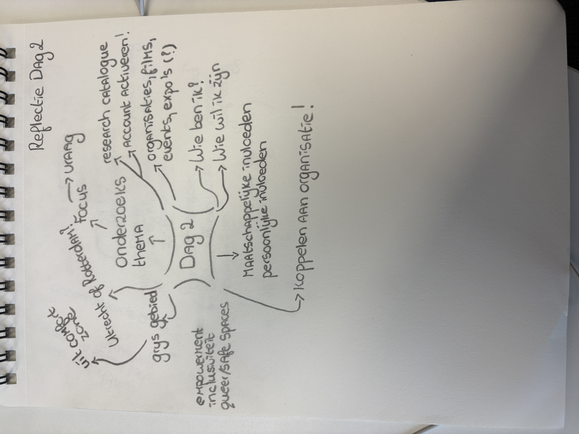 Reflectie Dag 2
research catalogue
Account activeren!
organisaties, films,
events, expo's (?)
Onderzoeks
thema
Focus
→ vraag
Utrecht of Rotterdam?
uit comfort
zone
grijs gebied
Dag 2
Wie ben ik?
Wie wil ik zijn
empowerment
inclusiviteit
queer/safe spaces
Maatschappelijke invloeden
persoonlijke invloeden
Koppelen aan organisatie!